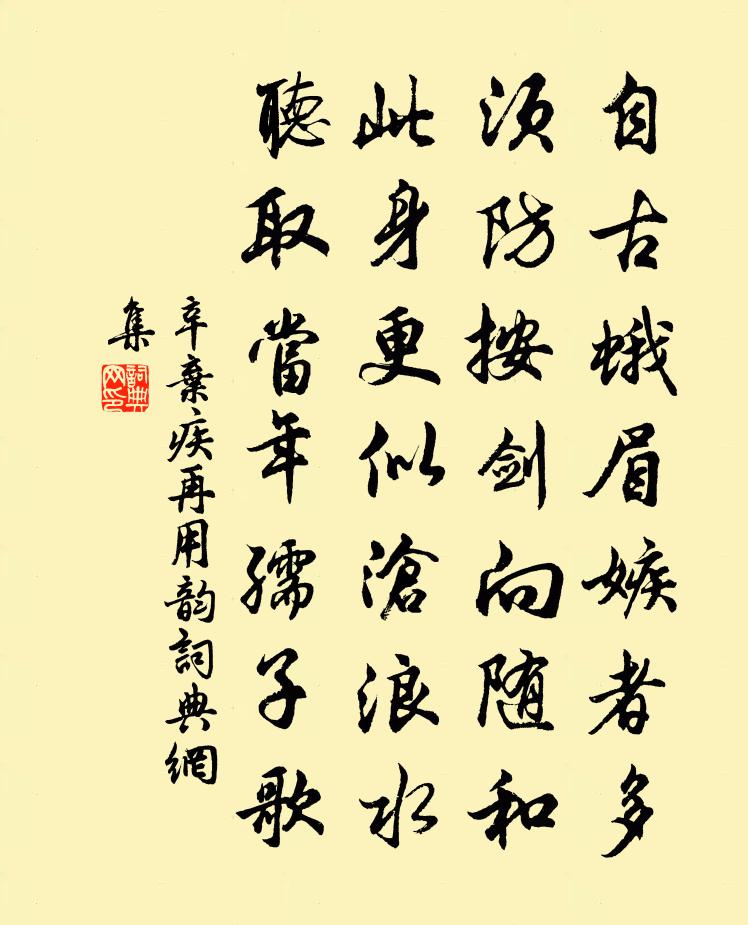 自古蛾眉嫉者多
须防按剑向随和
此身更似滄浪水
聽取當年孺子歌
辛棄疾再用韵詞典網
集
詞典
网印